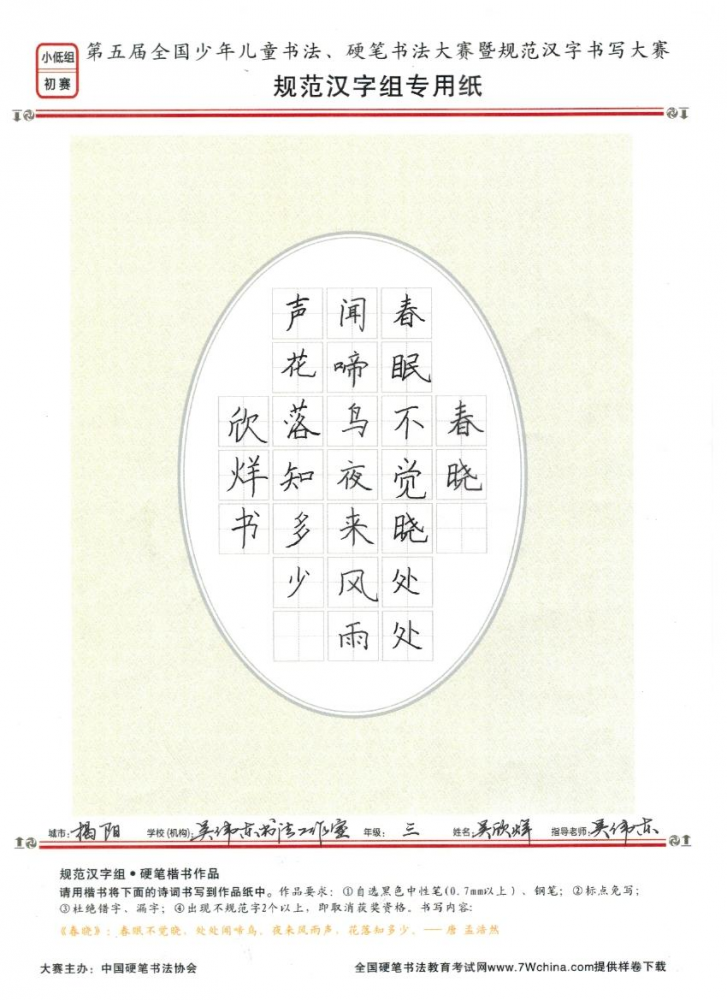 小低组
初赛
第五届全国少年儿童书法、硬笔书法大赛暨规范汉字书写大赛
规范汉字组专用纸
春晓
春眠不觉晓处处
闻啼鸟夜来风雨
声花落知多少
欣烊书
城市：揭阳 学校(机构)：吴伟东书法工作室 年级：三 姓名：吴欣烊 指导老师：吴伟东
规范汉字组●硬笔楷书作品
请用楷书将下面的诗词书写到作品纸中。作品要求：①自选黑色中性笔(0.7mm以上)、钢笔；②标点免写；
③杜绝错字、漏字；④出现不规范字2个以上，即取消获奖资格。书写内容：
《春晓》：春眠不觉晓，处处闻啼鸟，夜来风雨声，花落知多少。——唐 孟浩然
大赛主办：中国硬笔书法协会 全国硬笔书法教育考试网www.7Wchina.com提供样卷下载